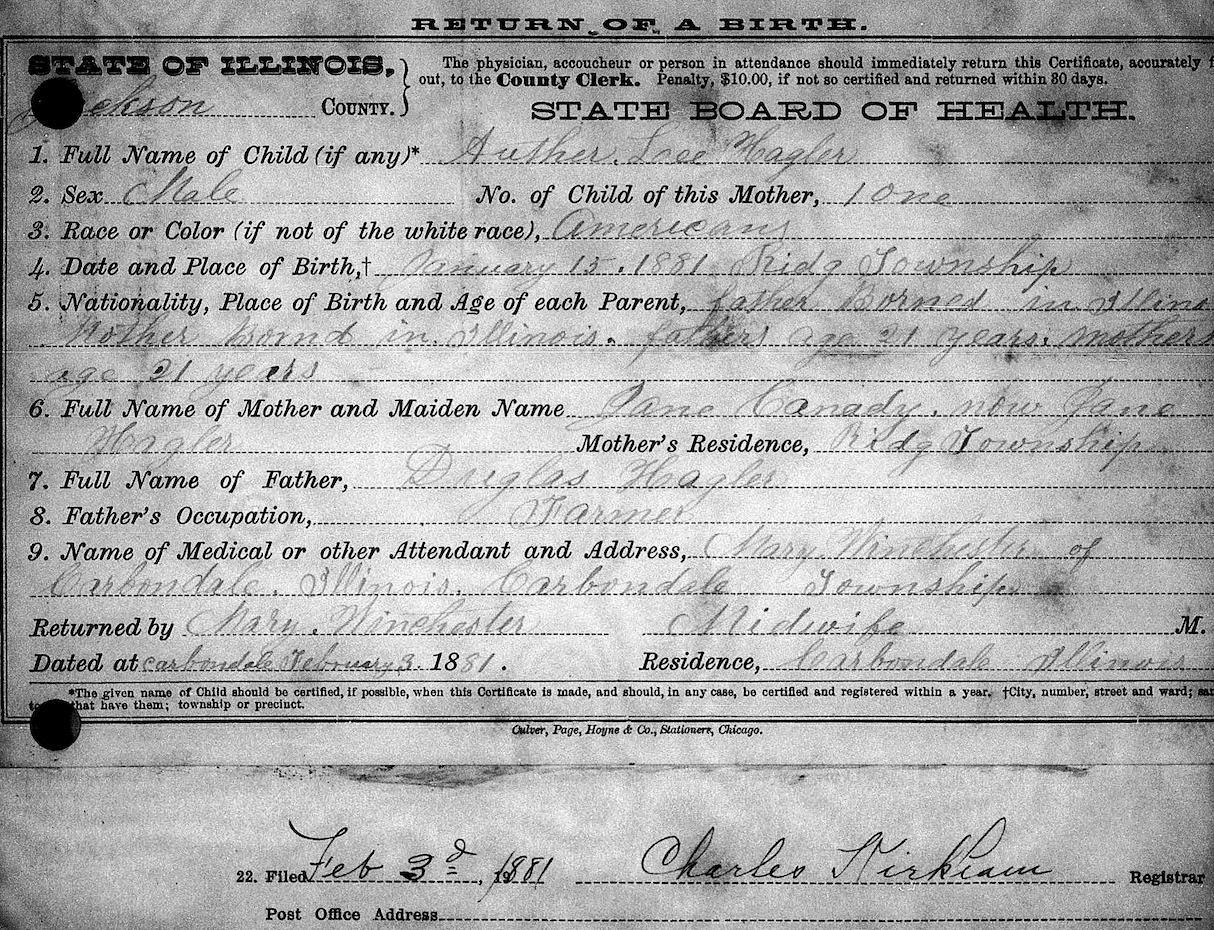 RETURN OF A BIRTH.
STATE OF ILLINOIS,
The physician, accoucheur or person in attendance should immediately return this Certificate, accurately
out, to the County Clerk. Penalty, $10.00, if not so certified and returned within 30 days.
ckson COUNTY.
STATE BOARD OF HEALTH.
1. Full Name of Child (if any)* Auther Lee Hagler
2. Sex Male No. of Child of this Mother, 1 One
3. Race or Color (if not of the white race), Americans
4. Date and Place of Birth,† January 15. 1881 Ridg Township
5. Nationality, Place of Birth and Age of each Parent, father Borned in Illino
Mother bornd in Illinois. fathers age 21 years. mothers
age 21 years
6. Full Name of Mother and Maiden Name Jane Canady. now Jane
Hagler Mother's Residence, Ridg Township
7. Full Name of Father, Duglas Hagler
8. Father's Occupation, Farmer
9. Name of Medical or other Attendant and Address, Mary Winchester of
Carbondale. Illinois. Carbondale Township
Returned by Mary. Winchester Midwife M.
Dated at carbondale February 3 1881. Residence, Carbondale Illinois
*The given name of Child should be certified, if possible, when this Certificate is made, and should, in any case, be certified and registered within a year. †City, number, street and ward;
that have them; township or precinct.
Culver, Page, Hoyne & Co., Stationers, Chicago.
22. Filed Feb 3d, 1881 Charles Kirkham Registrar
Post Office Address